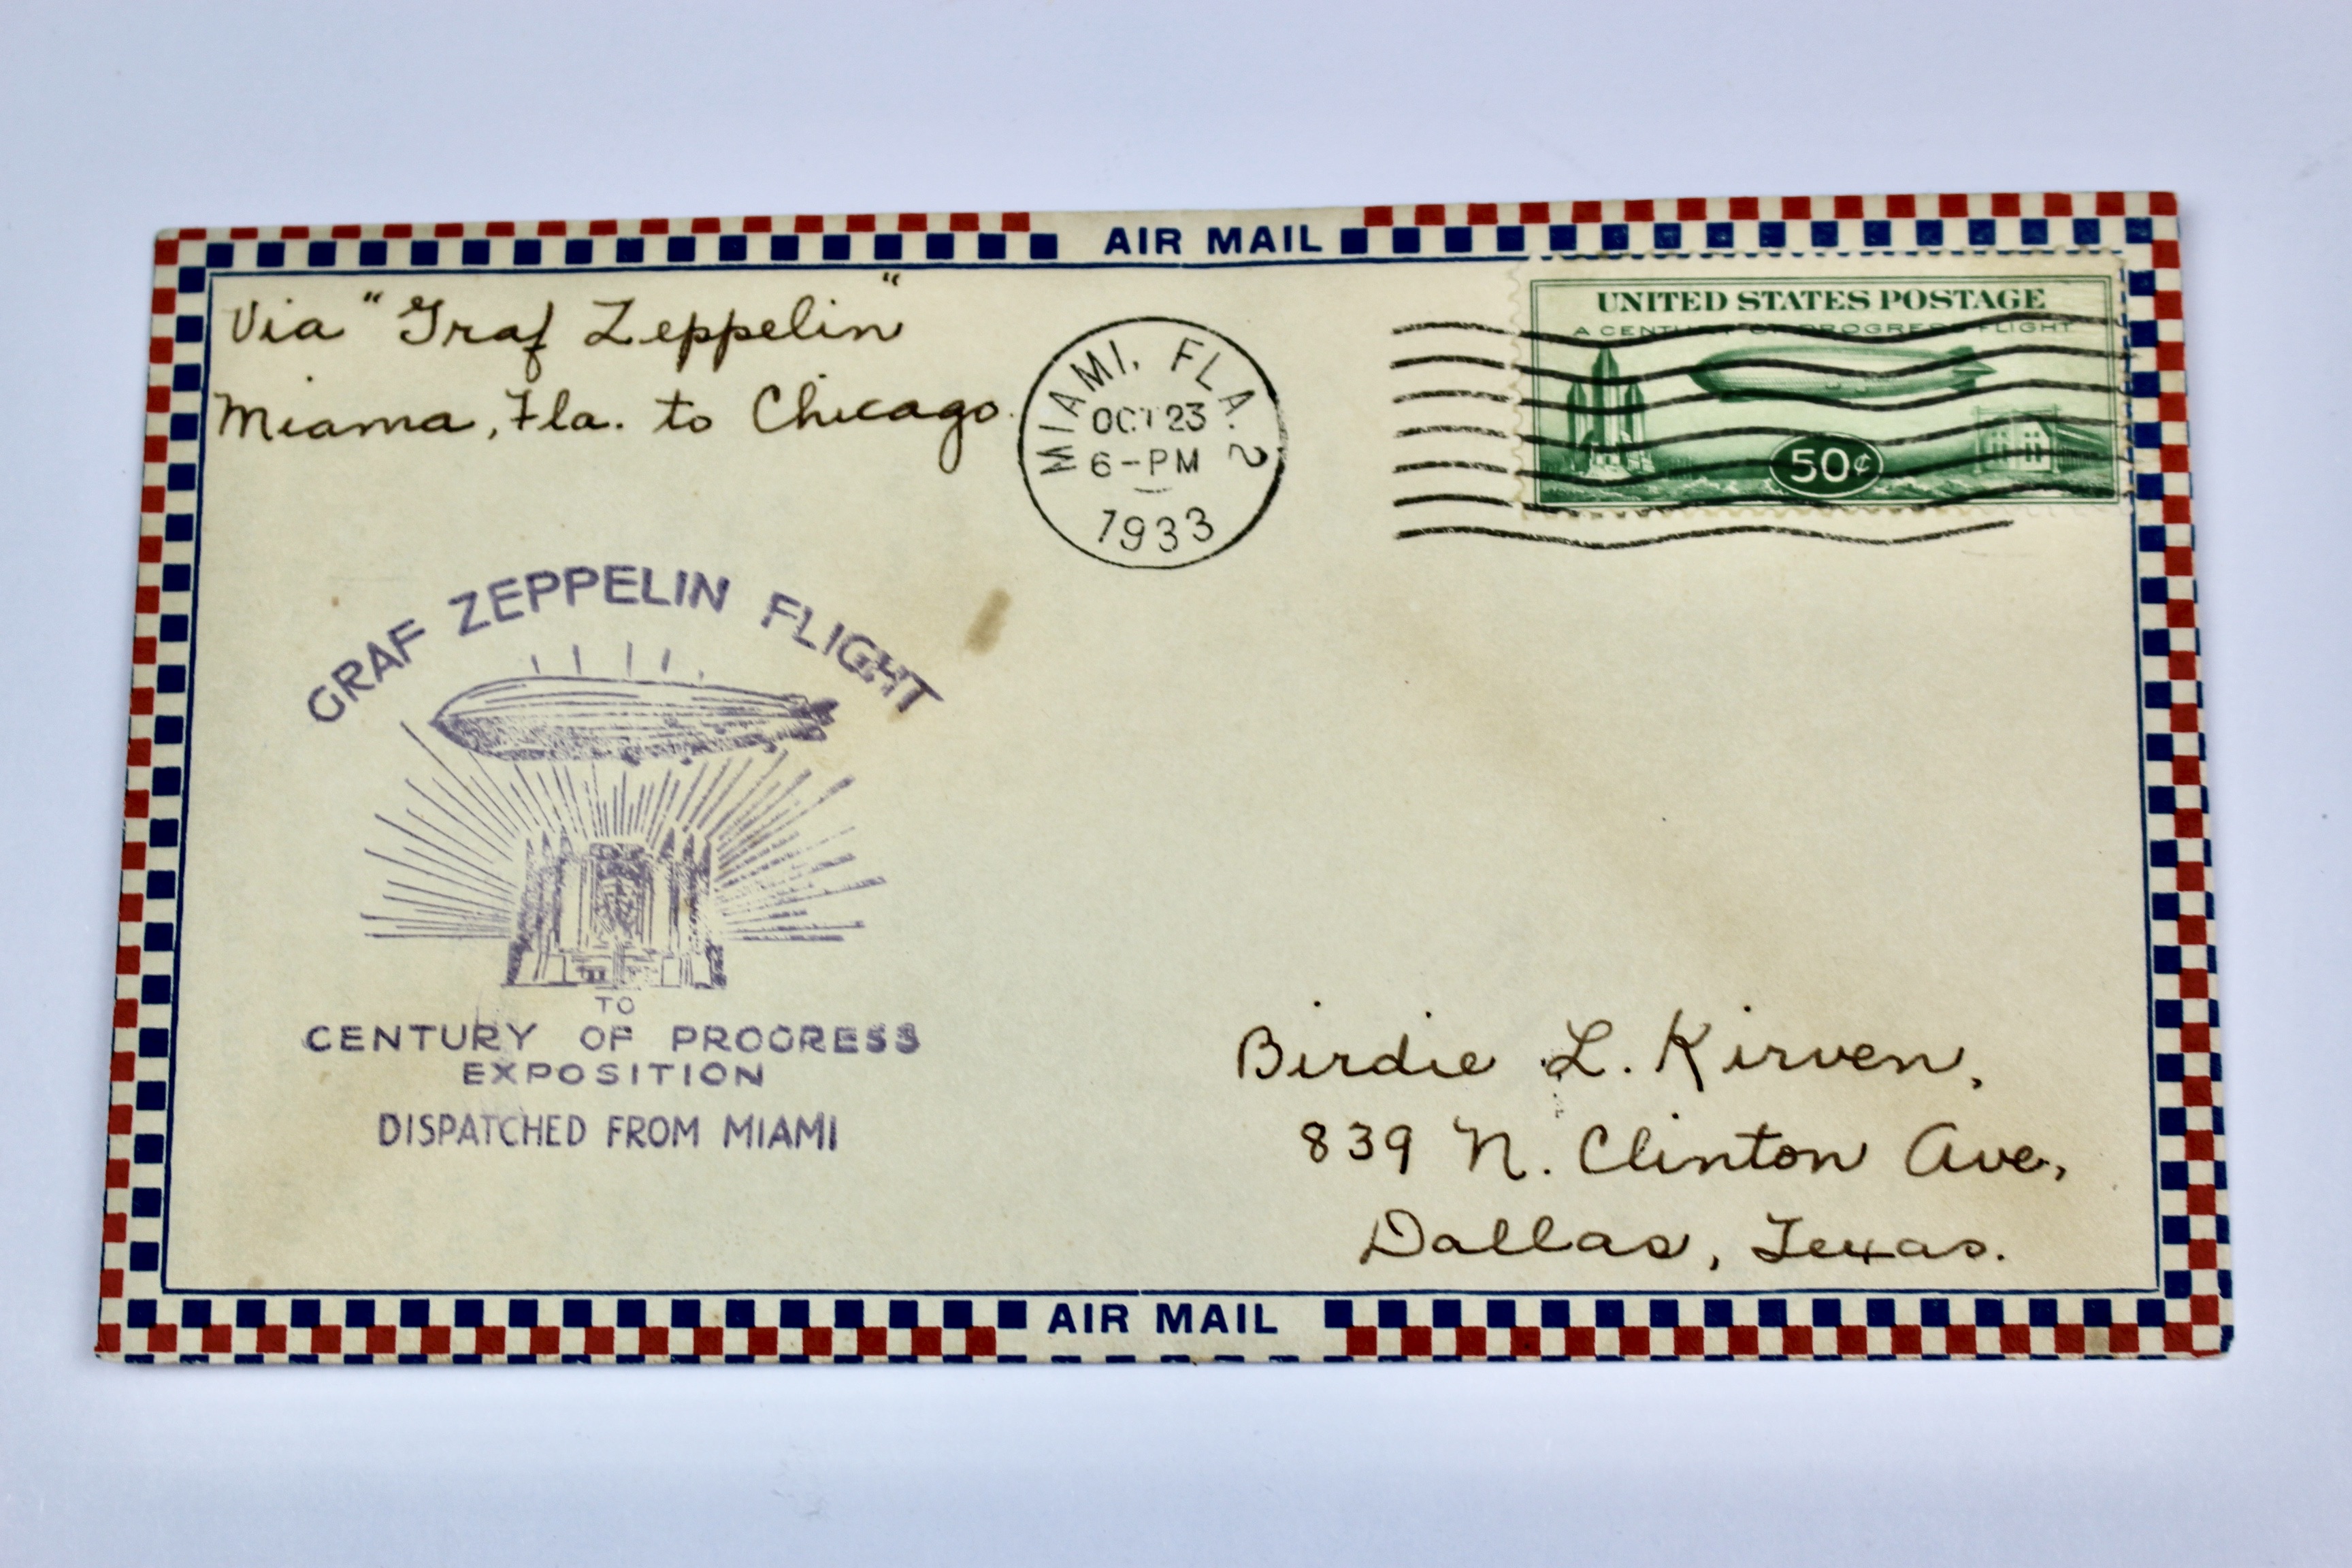 AIR MAIL
Via "Graf Zeppelin"
Miama, Fla. to Chicago.
MIAMI, FLA. 2
OCT 23
6-PM
1933
UNITED STATES POSTAGE
A CENTURY OF PROGRESS FLIGHT
50¢
GRAF ZEPPELIN FLIGHT
TO
CENTURY OF PROGRESS
EXPOSITION
DISPATCHED FROM MIAMI
Birdie L. Kirven,
839 N. Clinton Ave,
Dallas, Texas.
AIR MAIL